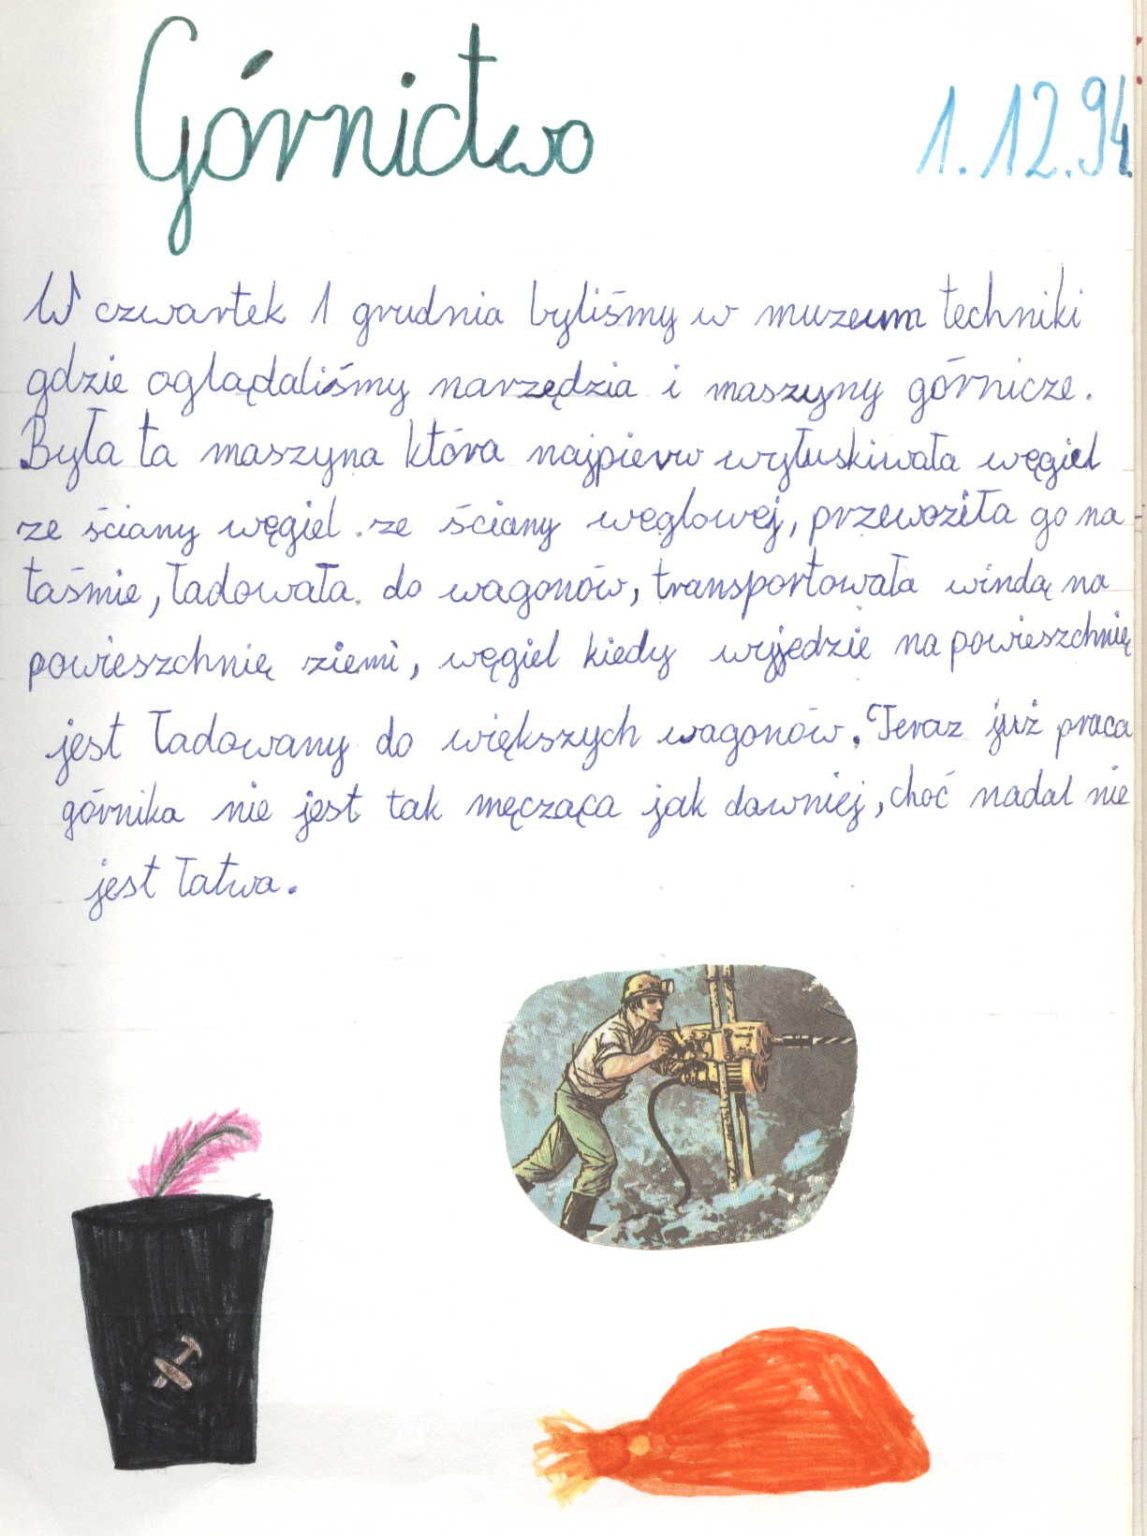 Górnictwo
1.12.94.
W czwartek 1 grudnia byliśmy w muzeum techniki
gdzie oglądaliśmy narzędzia i maszyny górnicze.
Była ta maszyna która najpierw wyłuskiwała węgiel
ze ściany węgiel ze ściany węglowej, przewoziła go na
taśmie, ładowała do wagonów, transportowała windą na
powieszchnię ziemi, węgiel kiedy wyjedzie na powieszchnię
jest ładowany do większych wagonów. Teraz już praca
górnika nie jest tak męcząca jak dawniej, choć nadal nie
jest łatwa.